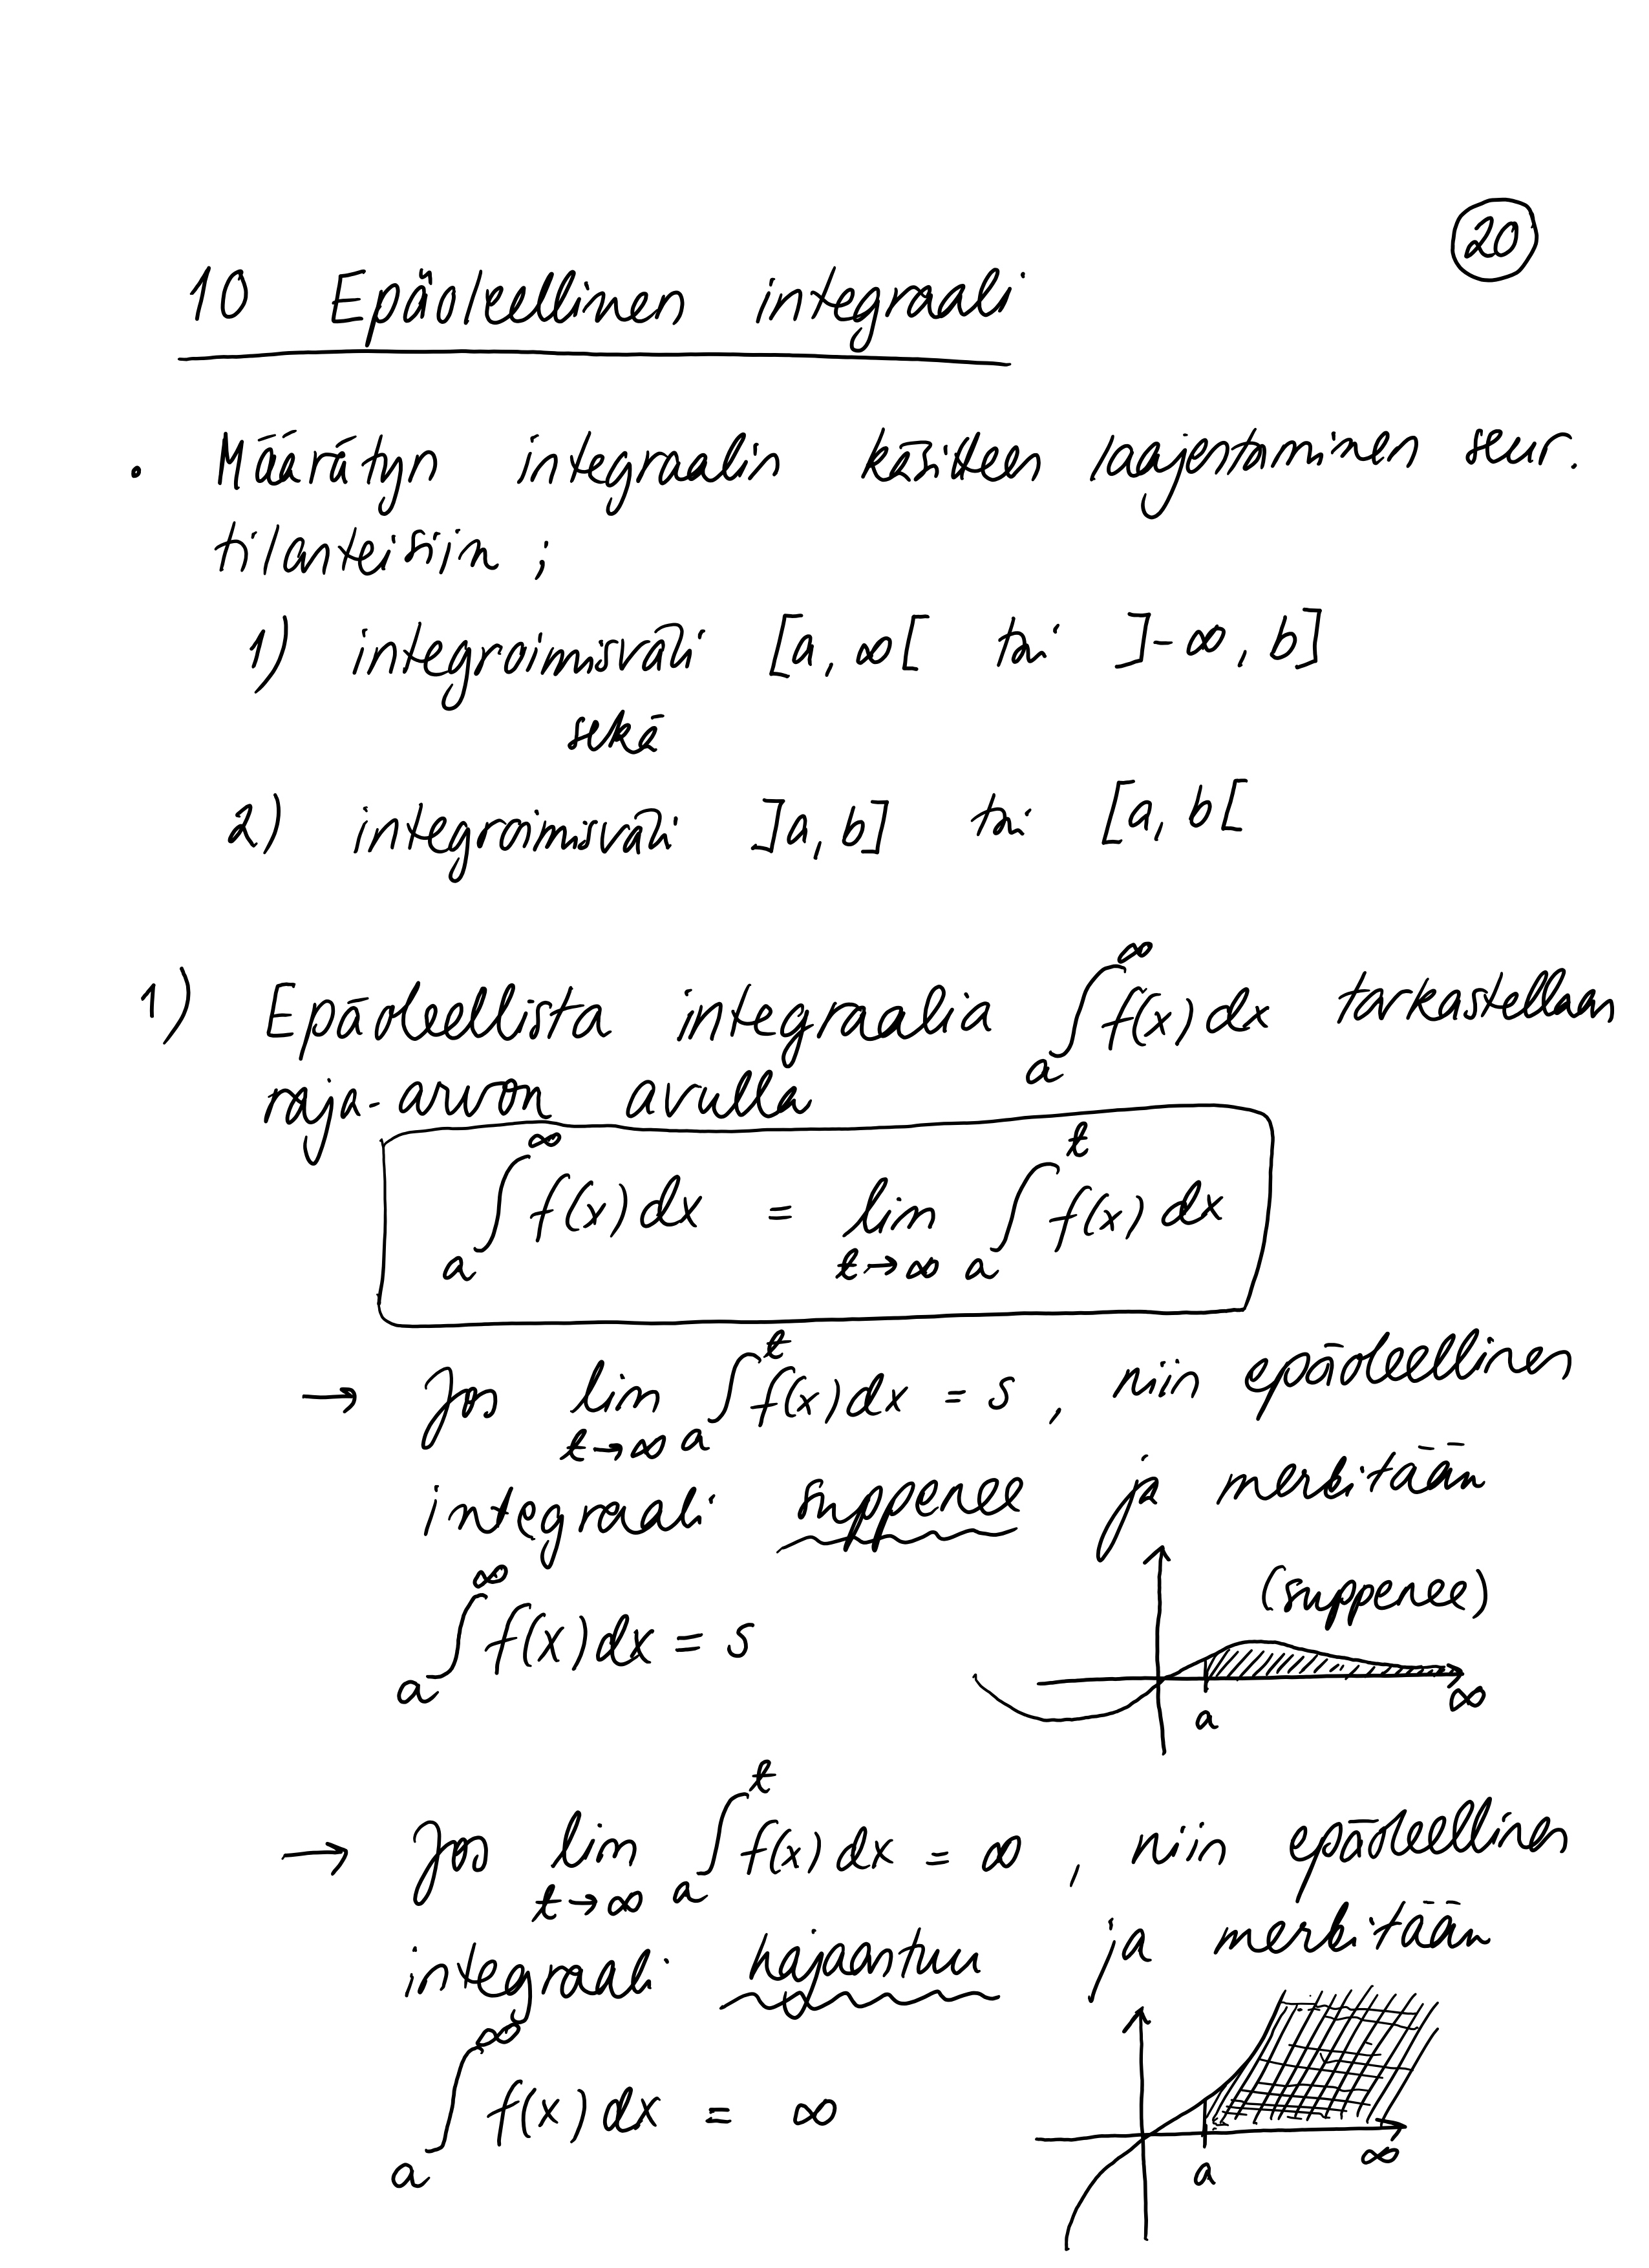 20
10 Epäoleellinen integraali
• Määrätyn integraalin käsitteen laajentaminen seur.
tilanteisiin ;
1) integroimisväli [a, ∞[ tai ]-∞, b]
sekä
2) integroimisväli ]a, b] tai [a, b[
1) Epäoleellista integraalia ∫_a^∞ f(x) dx tarkastellaan
raja-arvon avulla
∫_a^∞ f(x) dx = lim_{t→∞} ∫_a^t f(x) dx
→ Jos lim_{t→∞} ∫_a^t f(x) dx = s , niin epäoleellinen
integraali suppenee ja merkitään
∫_a^∞ f(x) dx = s
(suppenee)
a ∞
→ Jos lim_{t→∞} ∫_a^t f(x) dx = ∞ , niin epäoleellinen
integraali hajaantuu ja merkitään
∫_a^∞ f(x) dx = ∞
a ∞